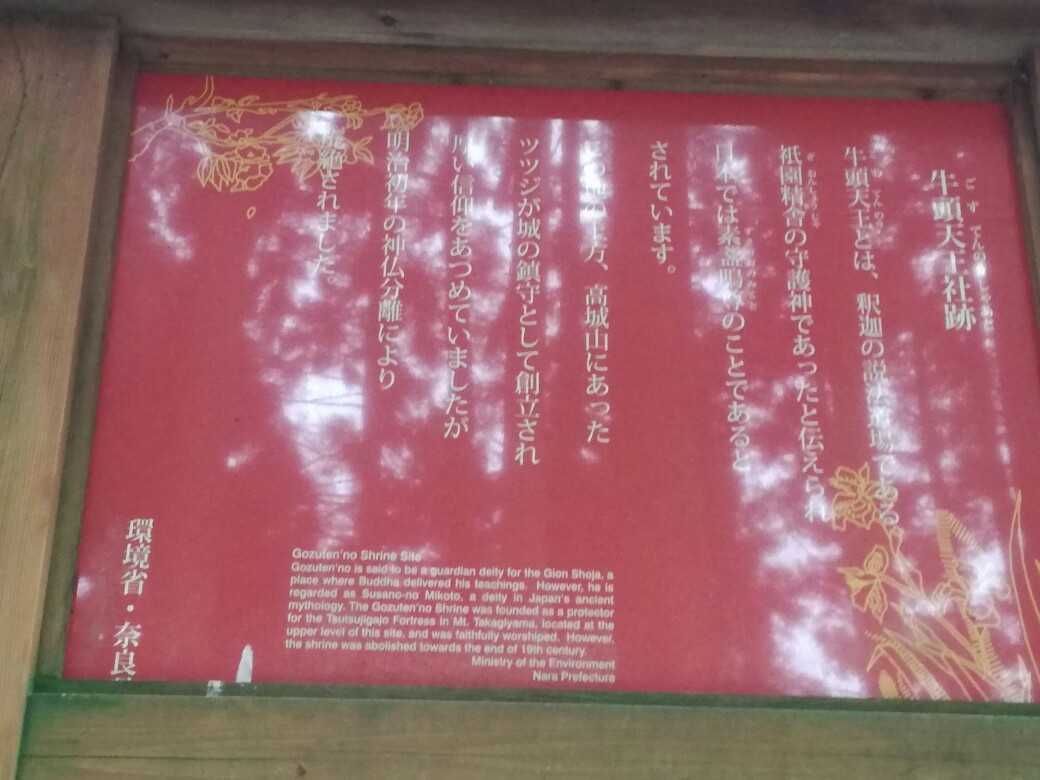 牛頭天王社跡
ごず てんのうしゃあと
牛頭天王とは、釈迦の説法道場である
祇園精舎の守護神であったと伝えられ
日本では素盞嗚尊のことであると
されています。
の上方、高城山にあった
ツツジが城の鎮守として創立され
厚い信仰をあつめていましたが
明治初年の神仏分離により
廃絶されました。
環境省・奈良
Gozuten'no Shrine Site
Gozuten'no is said to be a guardian deity for the Gion Shoja, a
place where Buddha delivered his teachings. However, he is
regarded as Susano-no Mikoto, a deity in Japan's ancient
mythology. The Gozuten'no Shrine was founded as a protector
for the Tsutsujigajo Fortress in Mt. Takagiyama, located at the
upper level of this site, and was faithfully worshiped. However,
the shrine was abolished towards the end of 19th century.
Ministry of the Environment
Nara Prefecture